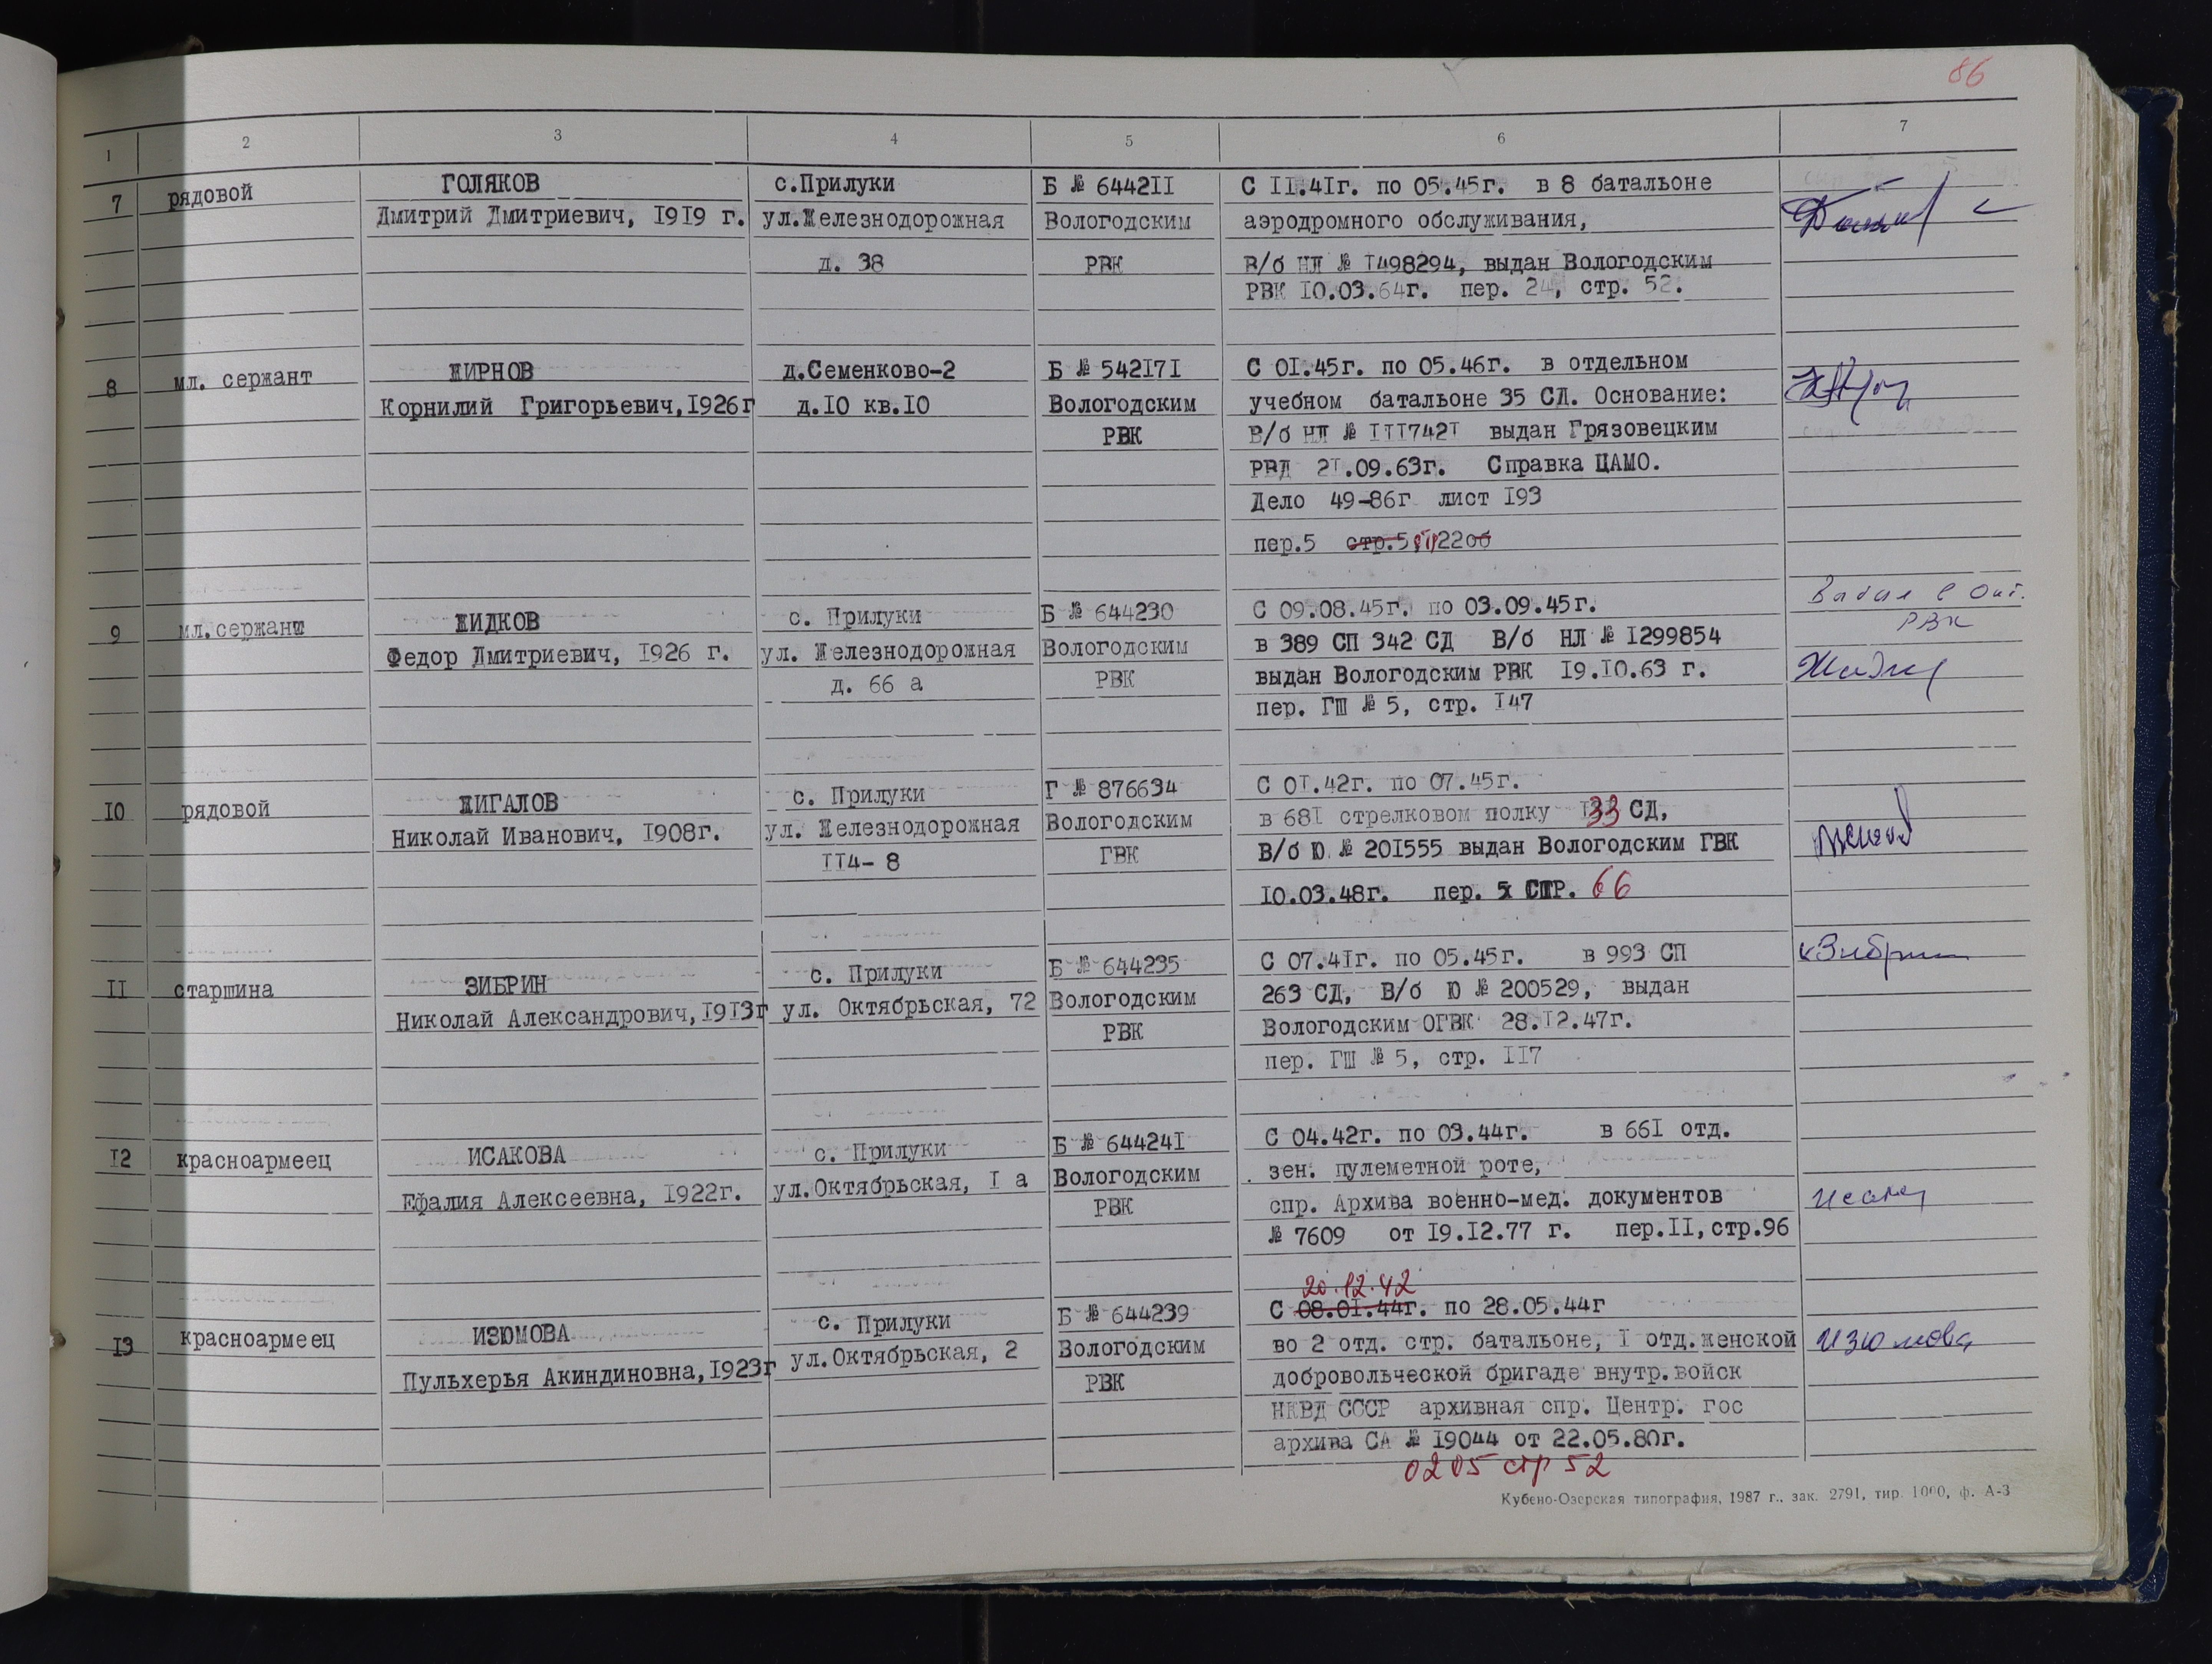 86
1 2 3 4 5 6 7
7 рядовой ГОЛЯКОВ с.Прилуки Б № 6442II С II.4Iг. по 05.45г. в 8 батальоне
Дмитрий Дмитриевич, I9I9 г. ул.Железнодорожная Вологодским аэродромного обслуживания,
д. 38 РВК В/б НЛ № I498294, выдан Вологодским
РВК I0.03.64г. пер. 24, стр. 52.
8 мл. сержант ЖИРНОВ д.Семенково-2 Б № 542I7I С 0I.45г. по 05.46г. в отдельном
Корнилий Григорьевич,I926г д.I0 кв.I0 Вологодским учебном батальоне 35 СД. Основание:
РВК В/б НЛ № III742I выдан Грязовецким
РВД 2I.09.63г. Справка ЦАМО.
Дело 49-86г лист I93
пер.5 стр.5 стр 22об
9 мл.сержант ЖИДКОВ с. Прилуки Б № 644230 С 09.08.45г. по 03.09.45г. РВК
Федор Дмитриевич, I926 г. ул. Железнодорожная Вологодским в 389 СП 342 СД В/б НЛ № I299854
д. 66 а РВК выдан Вологодским РВК I9.I0.63 г.
пер. ГШ № 5, стр. I47
I0 рядовой ЖИГАЛОВ с. Прилуки Г № 876634 С 0I.42г. по 07.45г.
Николай Иванович, I908г. ул. Железнодорожная Вологодским в 68I стрелковом полку I33 СД,
II4- 8 ГВК В/б Ю № 20I555 выдан Вологодским ГВК
I0.03.48г. пер. 5 СТР. 66
II старшина ЗИБРИН с. Прилуки Б № 644235 С 07.4Iг. по 05.45г. в 993 СП Зибрин
Николай Александрович,I9I3г ул. Октябрьская, 72 Вологодским 263 СД, В/б Ю № 200529, выдан
РВК Вологодским ОГВК 28.I2.47г.
пер. ГШ № 5, стр. II7
I2 красноармеец ИСАКОВА с. Прилуки Б № 64424I С 04.42г. по 03.44г. в 66I отд.
Ефалия Алексеевна, I922г. ул.Октябрьская, I а Вологодским зен. пулеметной роте,
РВК спр. Архива военно-мед. документов
№ 7609 от I9.I2.77 г. пер.II,стр.96
20.12.42
I3 красноармеец ИЗЮМОВА с. Прилуки Б № 644239 С 08.0I.44г. по 28.05.44г
Пульхерья Акиндиновна,I923г ул.Октябрьская, 2 Вологодским во 2 отд. стр. батальоне, I отд.женской Изюмова
РВК добровольческой бригаде внутр.войск
НКВД СССР архивная спр. Центр. гос
архива СА № I9044 от 22.05.80г.
0205 стр 52
Кубено-Озерская типография, 1987 г., зак. 2791, тир. 1000, ф. А-3